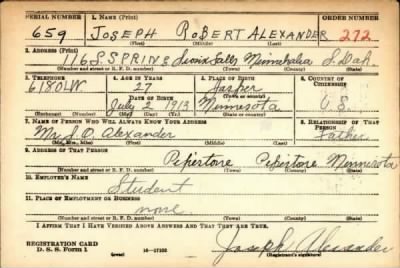 SERIAL NUMBER 1. NAME (Print) ORDER NUMBER
659 JOSEPH ROBERT ALEXANDER 272
(First) (Middle) (Last)
2. ADDRESS (Print)
116 S. SPRING Sioux Falls Minnehaha S. Dak.
(Number and street or R. F. D. number) (Town) (County) (State)
3. TELEPHONE 4. AGE IN YEARS 5. PLACE OF BIRTH 6. COUNTRY OF CITIZENSHIP
6180LW 27 Jasper
DATE OF BIRTH (Town or county)
July 2 1913 Minnesota U.S.
(Mo.) (Day) (Yr.) (State or country)
7. NAME OF PERSON WHO WILL ALWAYS KNOW YOUR ADDRESS 8. RELATIONSHIP OF THAT PERSON
Mr. J. O. Alexander Father
(Mr., Mrs., Miss) (First) (Middle) (Last)
9. ADDRESS OF THAT PERSON
Pipestone Pipestone Minnesota
(Number and street or R. F. D. number) (Town) (County) (State)
10. EMPLOYER'S NAME
Student
11. PLACE OF EMPLOYMENT OR BUSINESS
none
(Number and street or R. F. D. number) (Town) (County) (State)
I AFFIRM THAT I HAVE VERIFIED ABOVE ANSWERS AND THAT THEY ARE TRUE.
Joseph Alexander
REGISTRATION CARD
D. S. S. Form 1 (over) (Registrant's signature)